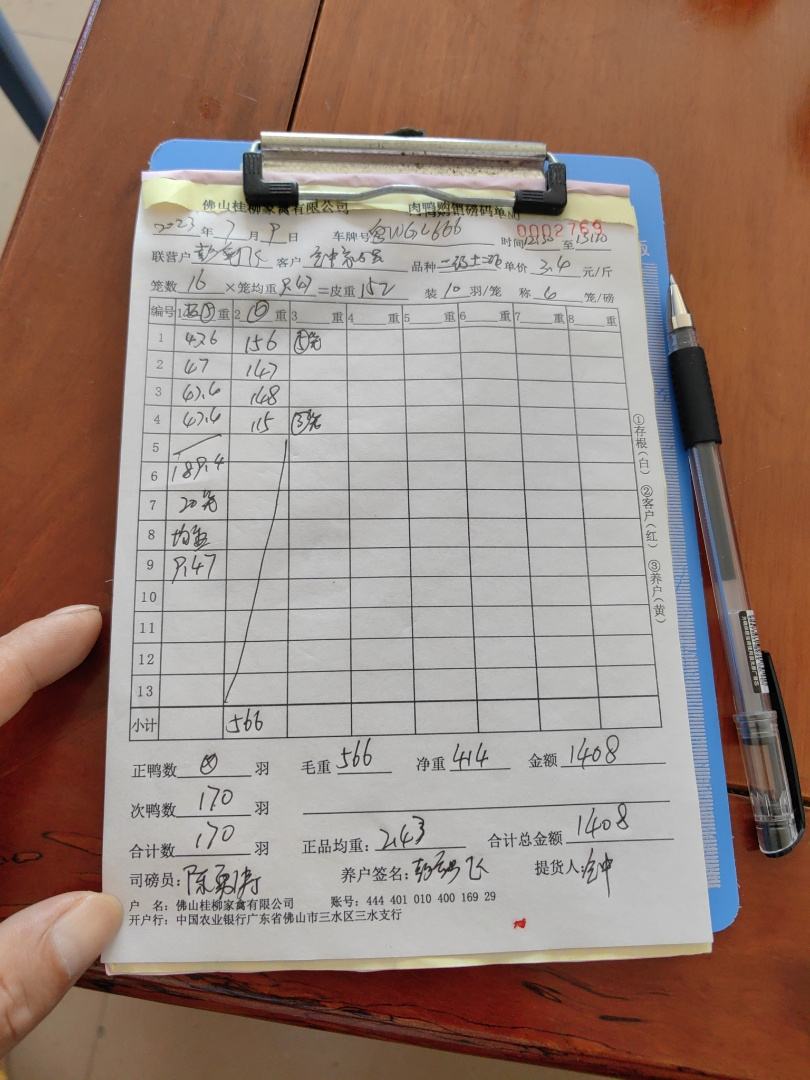 佛山桂柳家禽有限公司 肉鸭购销磅码单 NO 0002769
2023年7月9日 车牌号 WGL666 时间 至
联营户 客户 品种 单价 3.4 元/斤
笼数 16 ×笼均重 9.47 =皮重 152 装 10 羽/笼 称 6 笼/磅
编号 1 重 2 重 3 重 4 重 5 重 6 重 7 重 8 重
1 47.6 156 ⑤笼
2 47 147
3 47.4 148
4 47.4 115 ③笼
5
6 189.4
7 20笼
8 均重
9 9.47
10
11
12
13
小计 566
正鸭数 羽 毛重 566 净重 414 金额 1408
次鸭数 170 羽
合计数 170 羽 正品均重: 2.43 合计总金额 1408
司磅员: 陈 养户签名: 飞 提货人:
户 名: 佛山桂柳家禽有限公司 账号: 444 401 010 400 169 29
开户行: 中国农业银行广东省佛山市三水区三水支行
①存根(白) ②客户(红) ③养户(黄)